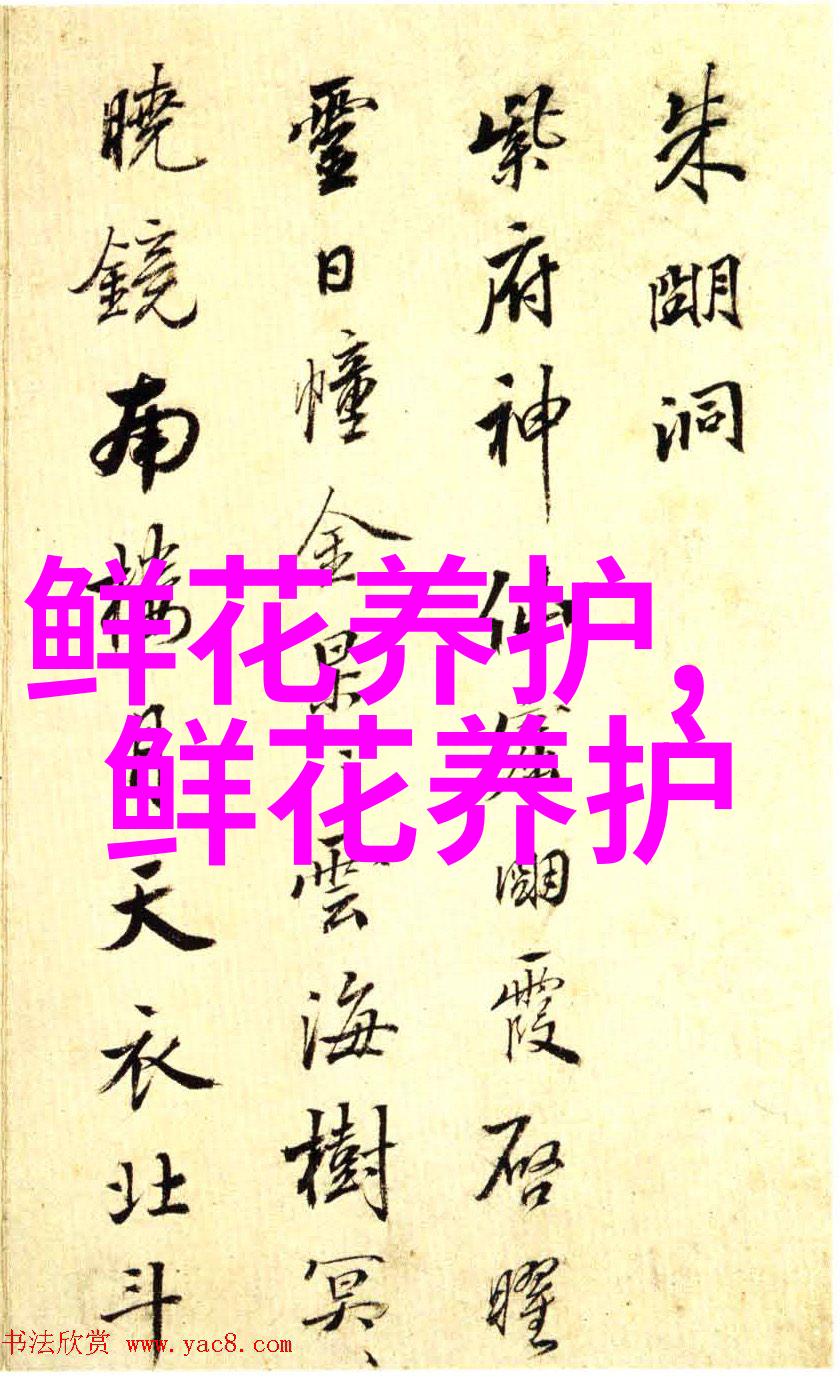 朱朙洞
紫府神仙朙霞启曜
霊日幢金杲、雲海樹冥、
曉鏡南樓月天衣北斗
鲜花养护,
鲜花养护
书法欣赏 www.yac8.com